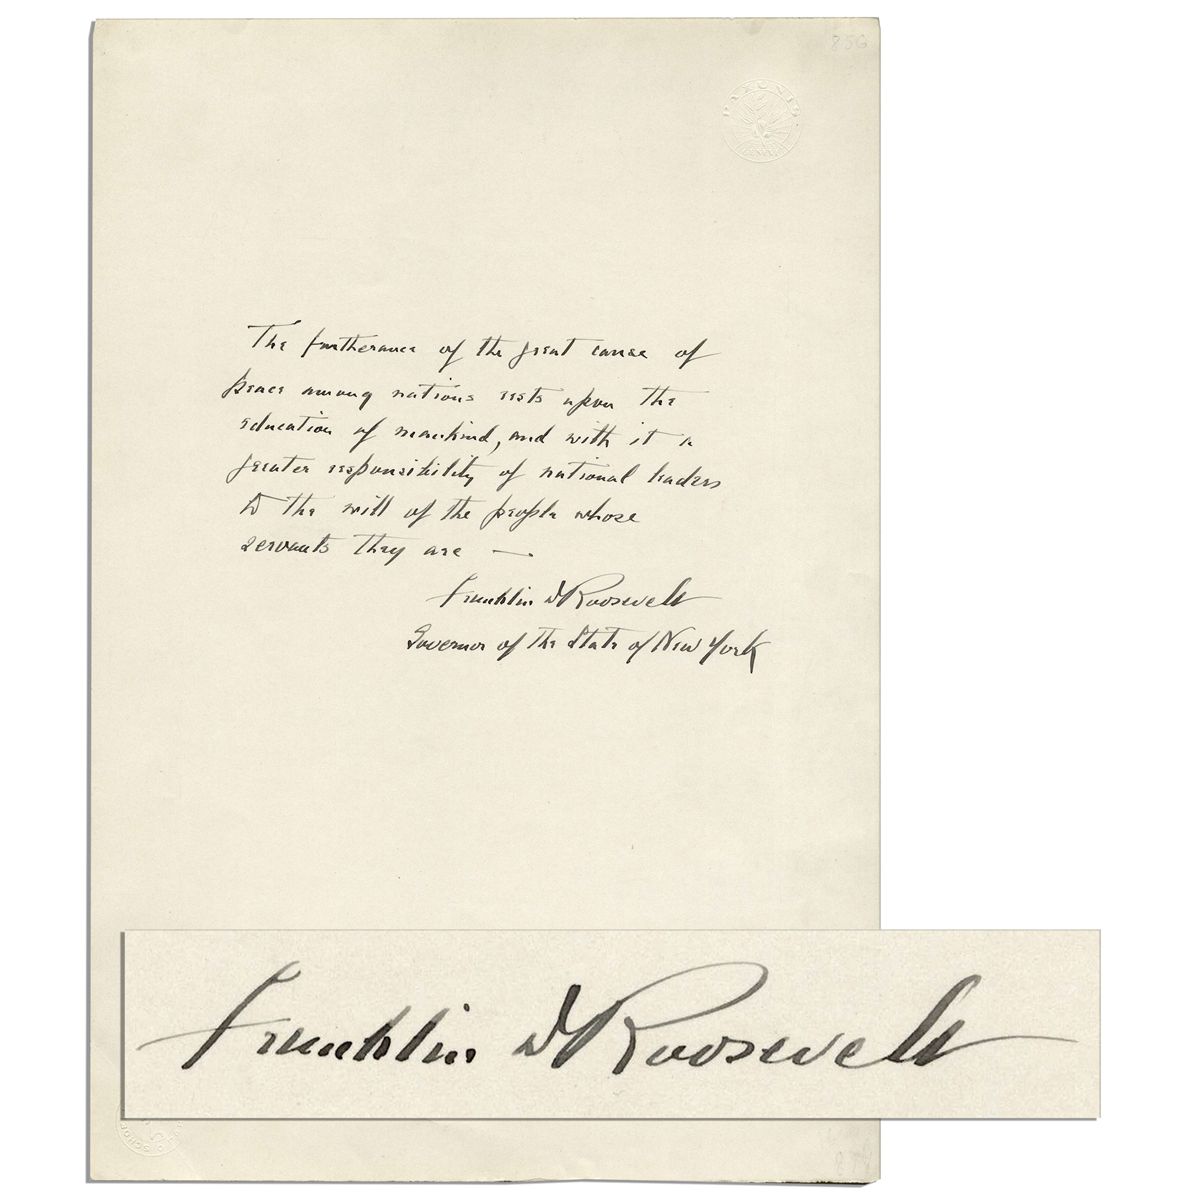 856
PAX UNIS
GENÈVE
The furtherance of the great cause of
peace among nations rests upon the
education of mankind, and with it a
greater responsibility of national leaders
to the will of the people whose
servants they are —
Franklin D Roosevelt
Governor of the State of New York
Franklin D Roosevelt